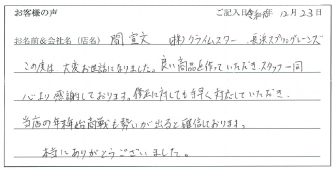 お客様の声 ご記入日 令和5年 12月23日
お名前&会社名(店名) 間 宣文 (株)クライムスワー 長浜スプリングレーンズ
この度は大変お世話になりました。良い商品を作っていただき、スタッフ一同
心より感謝しております。修正に対しても手早く対応していただき、
当店の年末年始商戦も勢いが出ると確信しております。
本当にありがとうございました。